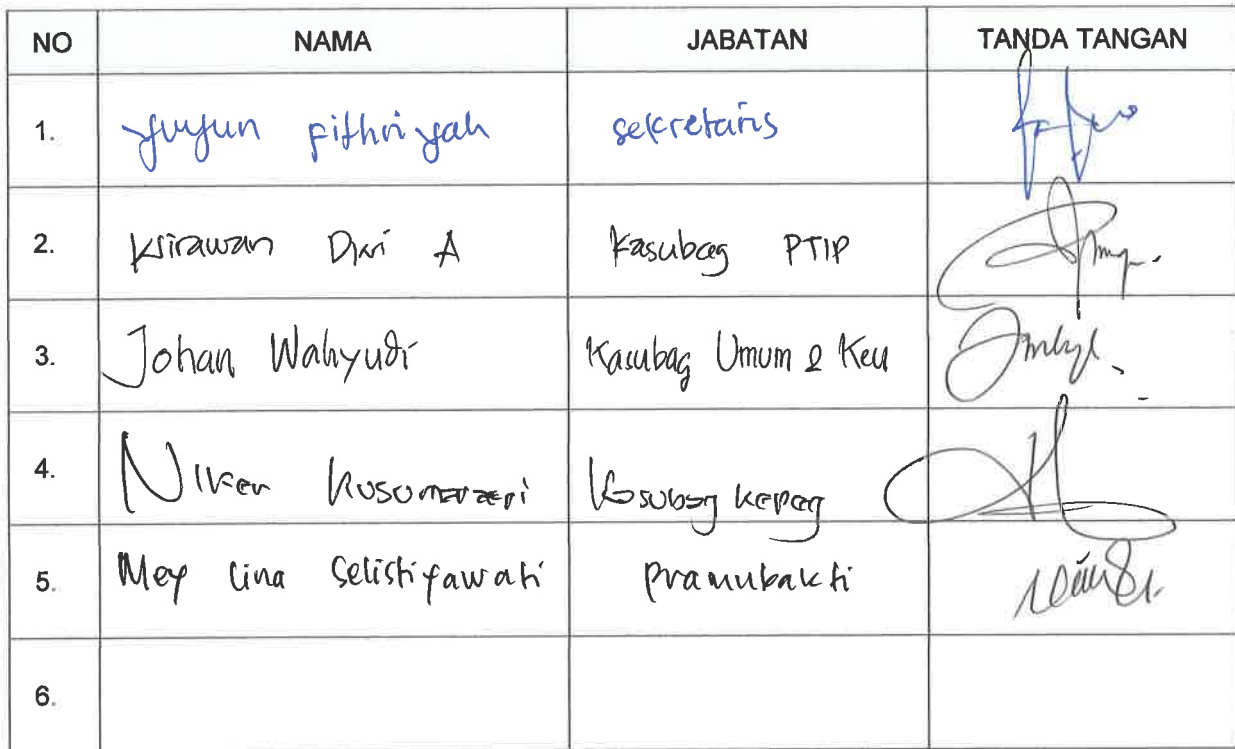 NO NAMA JABATAN TANDA TANGAN
1. Yuyun Fithriyah sekretaris
2. Dwi A Kasubag PTIP
3. Johan Wahyudi Kasubag Umum & Keu
4. Niken Kasubag kepeg
5. Mey Lina Selistiyawati Pramubakti
6.